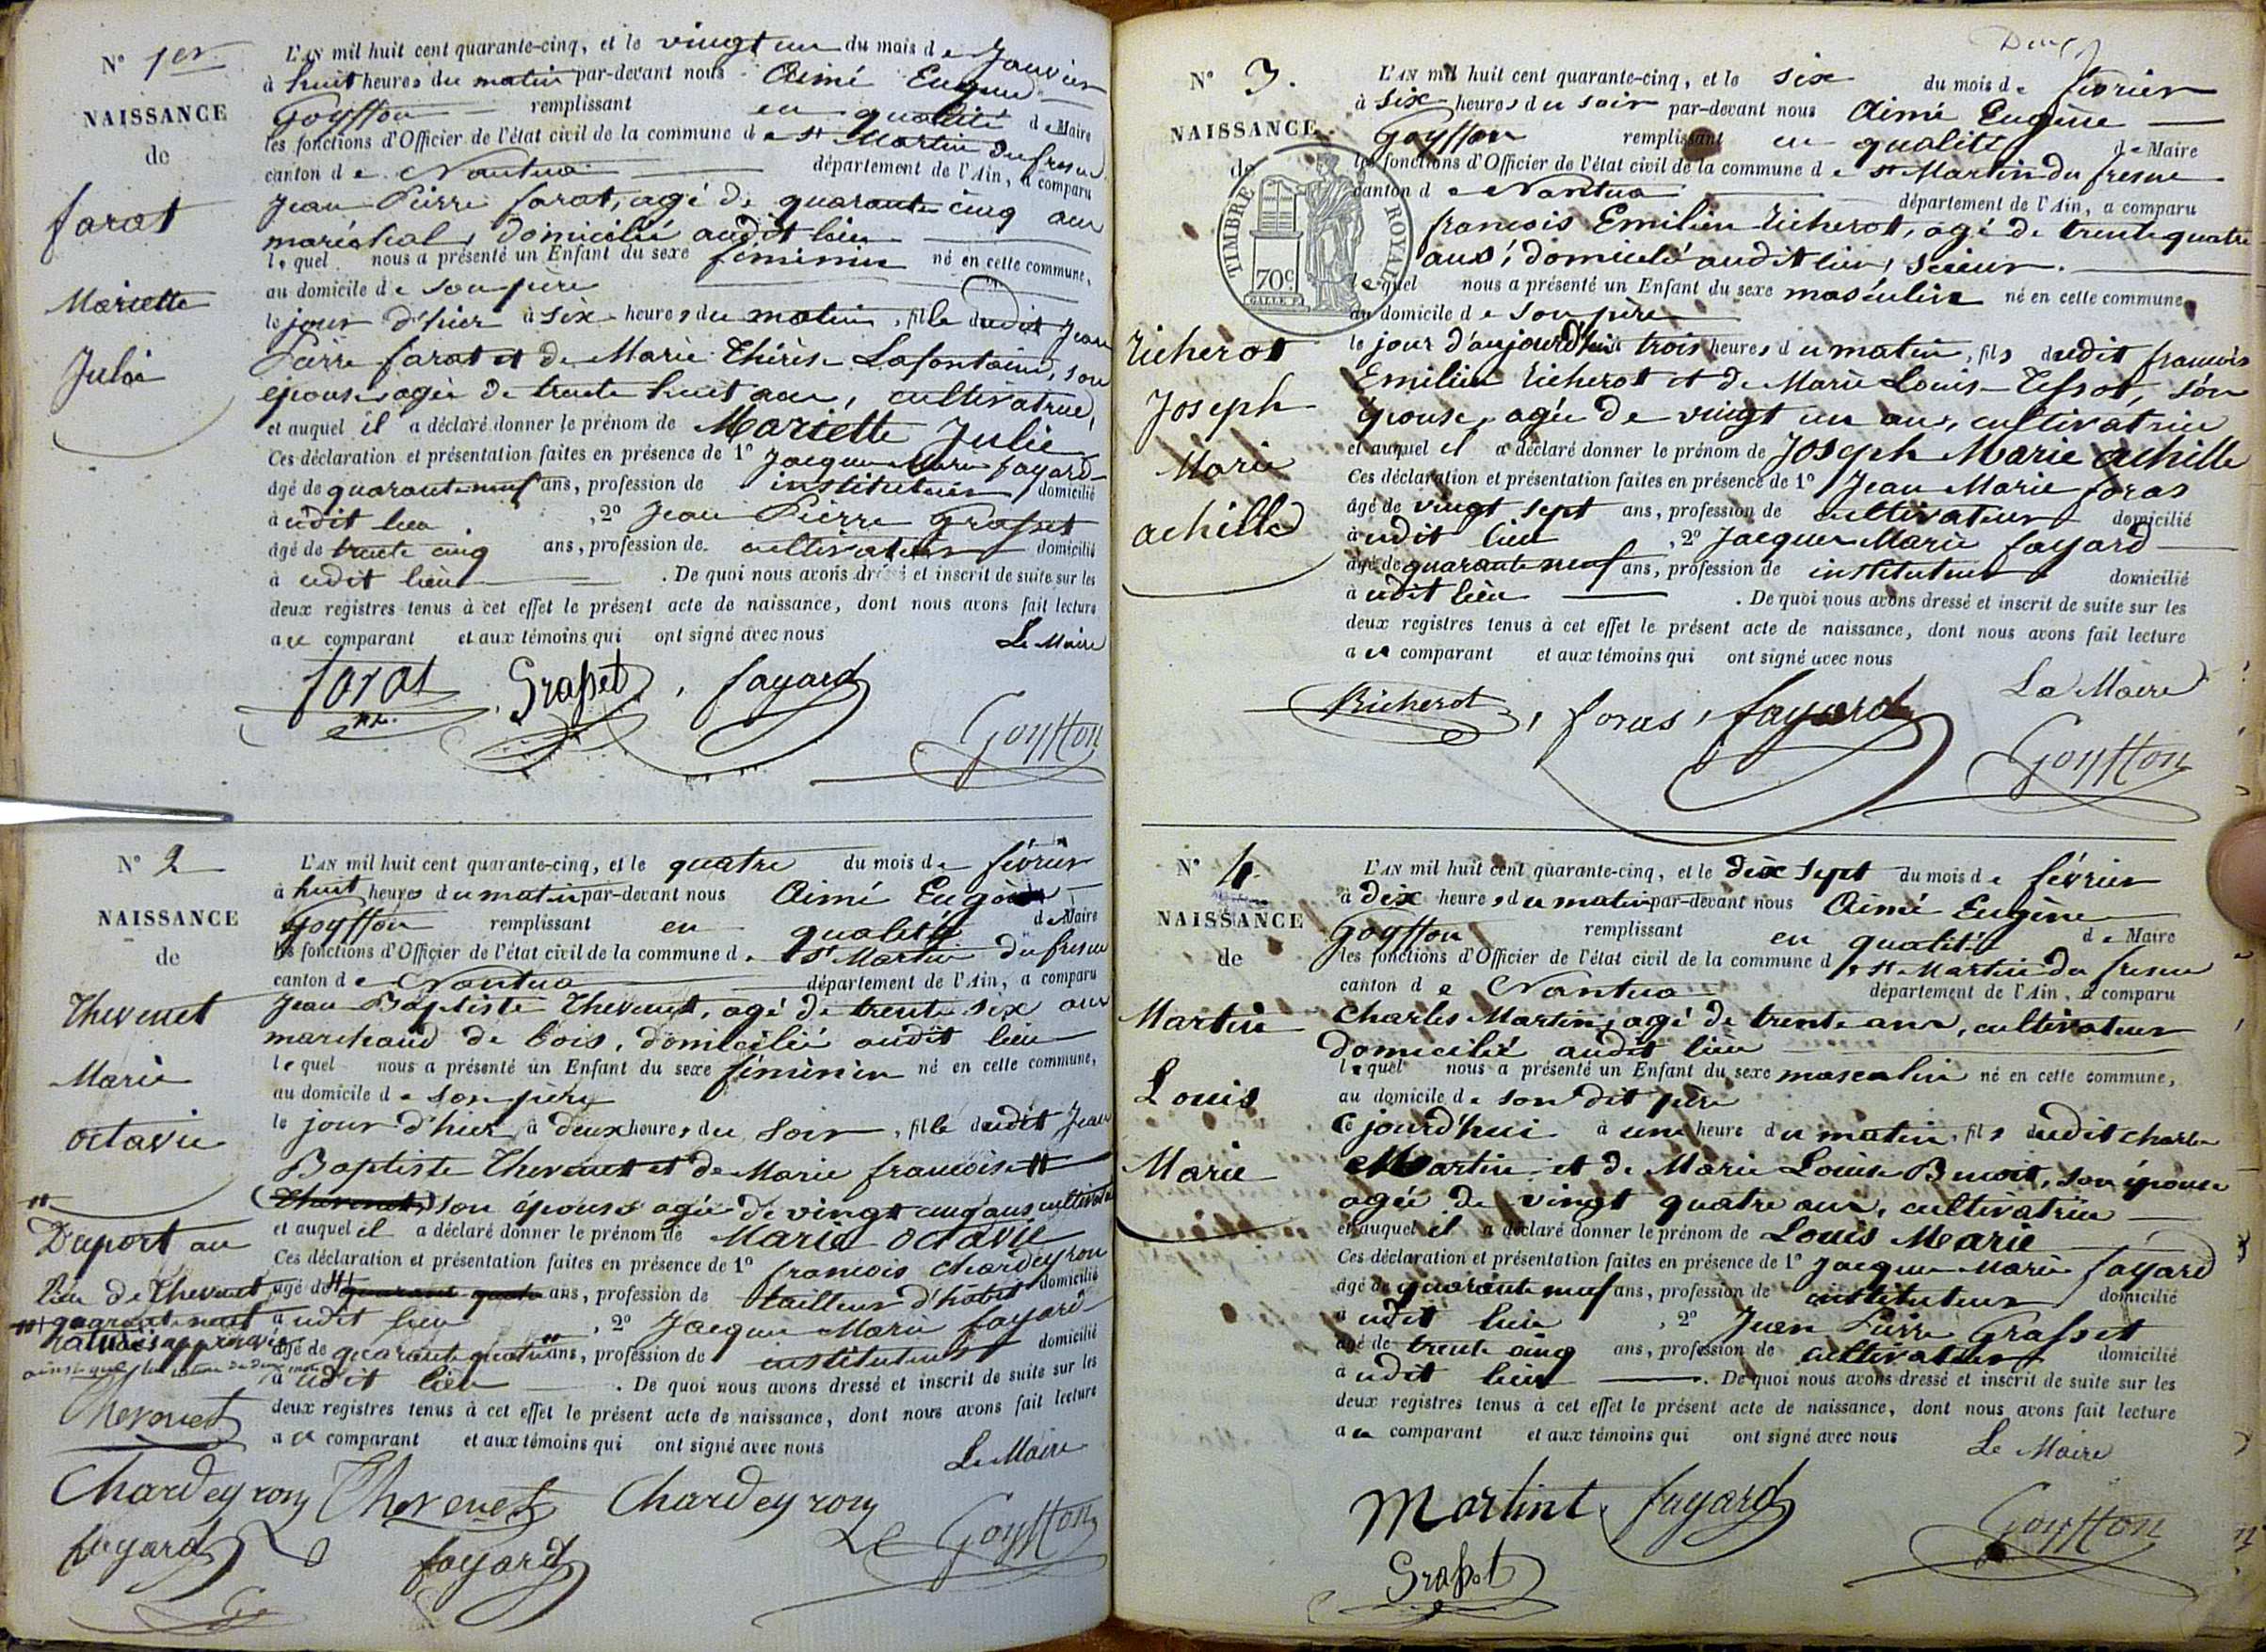 N° 1er
NAISSANCE
de
farat
Mariette
Julie
L'AN mil huit cent quarante-cinq, et le vingt un du mois de Janvier
à huit heures du matin par-devant nous Aimé Eugène
Goyffon remplissant en qualité de Maire
les fonctions d'Officier de l'état civil de la commune de St Martin du fresne
canton de Nantua département de l'Ain, a comparu
Jean Pierre farat, agé de quarante cinq ans
maréchal, domicilié audit lieu
lequel nous a présenté un Enfant du sexe féminin né en cette commune,
au domicile de son père
le jour d'hier à six heures du matin, fille dudit Jean
Pierre farat et de Marie Thérèse Lafontaine, son
épouse agée de trente huit ans, cultivatrice,
et auquel il a déclaré donner le prénom de Mariette Julie
Ces déclaration et présentation faites en présence de 1° Jacques Marie fayard
âgé de quarante neuf ans, profession de instituteur domicilié
audit lieu, 2° Jean Pierre Grasset
âgé de trente cinq ans, profession de cultivateur domicilié
à udit lieu. De quoi nous avons dressé et inscrit de suite sur les
deux registres tenus à cet effet le présent acte de naissance, dont nous avons fait lecture
a ce comparant et aux témoins qui ont signé avec nous
Le Maire
farat Grasset, fayard
Goyffon
N° 2
NAISSANCE
de
Thevenet
Marie
octavie
Duport au
lieu de Thevenet
quarante neuf
ratures approuvées
Thevenet
Chardeyron
fayard
L'AN mil huit cent quarante-cinq, et le quatre du mois de février
à huit heures du matin par-devant nous Aimé Eugène
Goyffon remplissant en qualité de Maire
les fonctions d'Officier de l'état civil de la commune de St Martin du fresne
canton de Nantua département de l'Ain, a comparu
Jean Baptiste Thevenet, agé de trente six ans
marchand de bois, domicilié audit lieu
lequel nous a présenté un Enfant du sexe féminin né en cette commune,
au domicile de son père
le jour d'hier à deux heures du soir, fille dudit Jean
Baptiste Thevenet et de Marie francoise
(Thevenet,) son épouse agée de vingt cinq ans cultivatrice
et auquel il a déclaré donner le prénom de Marie octavie
Ces déclaration et présentation faites en présence de 1° francois Chardeyron
âgé de quarante quatre ans, profession de tailleur d'habit domicilié
à udit lieu, 2° Jacques Marie fayard
âgé de quarante quatre ans, profession de instituteur domicilié
à udit lieu. De quoi nous avons dressé et inscrit de suite sur les
deux registres tenus à cet effet le présent acte de naissance, dont nous avons fait lecture
a ce comparant et aux témoins qui ont signé avec nous
Le Maire
Thevenet Chardeyron
fayard
Goyffon
N° 3.
NAISSANCE
de
TIMBRE ROYAL
70c
Richerot
Joseph
Marie
achille
L'AN mil huit cent quarante-cinq, et le six du mois de février
à six heures du soir par-devant nous Aimé Eugène
Goyffon remplissant en qualité de Maire
les fonctions d'Officier de l'état civil de la commune de St Martin du fresne
canton de Nantua département de l'Ain, a comparu
francois Emilien Richerot, agé de trente quatre
ans, domicilié audit lieu, scieur.
lequel nous a présenté un Enfant du sexe masculin né en cette commune
au domicile de son père
le jour d'aujourd'hui à trois heures du matin, fils dudit francois
Emilien Richerot et de Marie Louise Tissot, son
épouse, agée de vingt un ans, cultivatrice
et auquel il a déclaré donner le prénom de Joseph Marie achille
Ces déclaration et présentation faites en présence de 1° Jean Marie foras
âgé de vingt sept ans, profession de cultivateur domicilié
à udit lieu, 2° Jacques Marie fayard
âgé de quarante neuf ans, profession de instituteur domicilié
à udit lieu. De quoi nous avons dressé et inscrit de suite sur les
deux registres tenus à cet effet le présent acte de naissance, dont nous avons fait lecture
a ce comparant et aux témoins qui ont signé avec nous
Le Maire
Richerot, foras, fayard
Goyffon
N° 4
NAISSANCE
de
Martin
Louis
Marie
L'AN mil huit cent quarante-cinq, et le dix sept du mois de février
à dix heures du matin par-devant nous Aimé Eugène
Goyffon remplissant en qualité de Maire
les fonctions d'Officier de l'état civil de la commune de St Martin du fresne
canton de Nantua département de l'Ain, a comparu
Charles Martin, agé de trente ans, cultivateur
domicilié audit lieu
lequel nous a présenté un Enfant du sexe masculin né en cette commune,
au domicile de son dit père
Ce jourd'hui à une heure du matin, fils dudit Charles
Martin et de Marie Louise Benoit, son épouse
agée de vingt quatre ans, cultivatrice
et auquel il a déclaré donner le prénom de Louis Marie
Ces déclaration et présentation faites en présence de 1° Jacques Marie fayard
âgé de quarante neuf ans, profession de instituteur domicilié
à udit lieu, 2° Jean Pierre Grasset
âgé de trente cinq ans, profession de cultivateur domicilié
à udit lieu. De quoi nous avons dressé et inscrit de suite sur les
deux registres tenus à cet effet le présent acte de naissance, dont nous avons fait lecture
a ce comparant et aux témoins qui ont signé avec nous
Le Maire
Martint fayard
Grasset
Goyffon